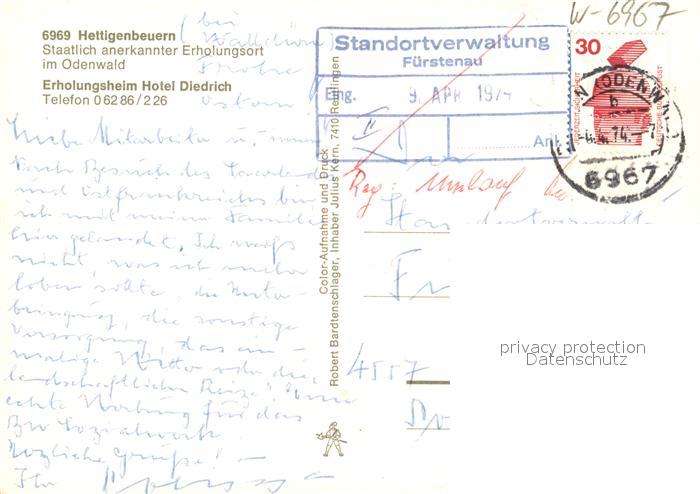 W-6967
6969 Hettigenbeuern
Staatlich anerkannter Erholungsort
im Odenwald
Erholungsheim Hotel Diedrich
Telefon 06286/226
(bei
Walldürn)
Frohe
Ostern
Standortverwaltung
Fürstenau
Eing. 9. APR 1974
II
Anl.
30
(ODENW.)
b
6967
Reg: Umlauf
Liebe Mitarbeiter u.
Nach Besuch des
und Ostfrankreichs bin
ich mit meiner Familie
hier gelandet. Ich weiß
nicht, was ich mehr
loben sollte, die Unter-
bringung, die sonstige
Versorgung, das ein-
malige Wetter oder die
landschaftlichen Reize!
echte Werbung für das
BW Sozialwerk
Herzliche Grüße!
Ihr
4557
Color-Aufnahme und Druck
Robert Bardtenschlager, Inhaber Julius Kern, 7410 Reutlingen
privacy protection
Datenschutz